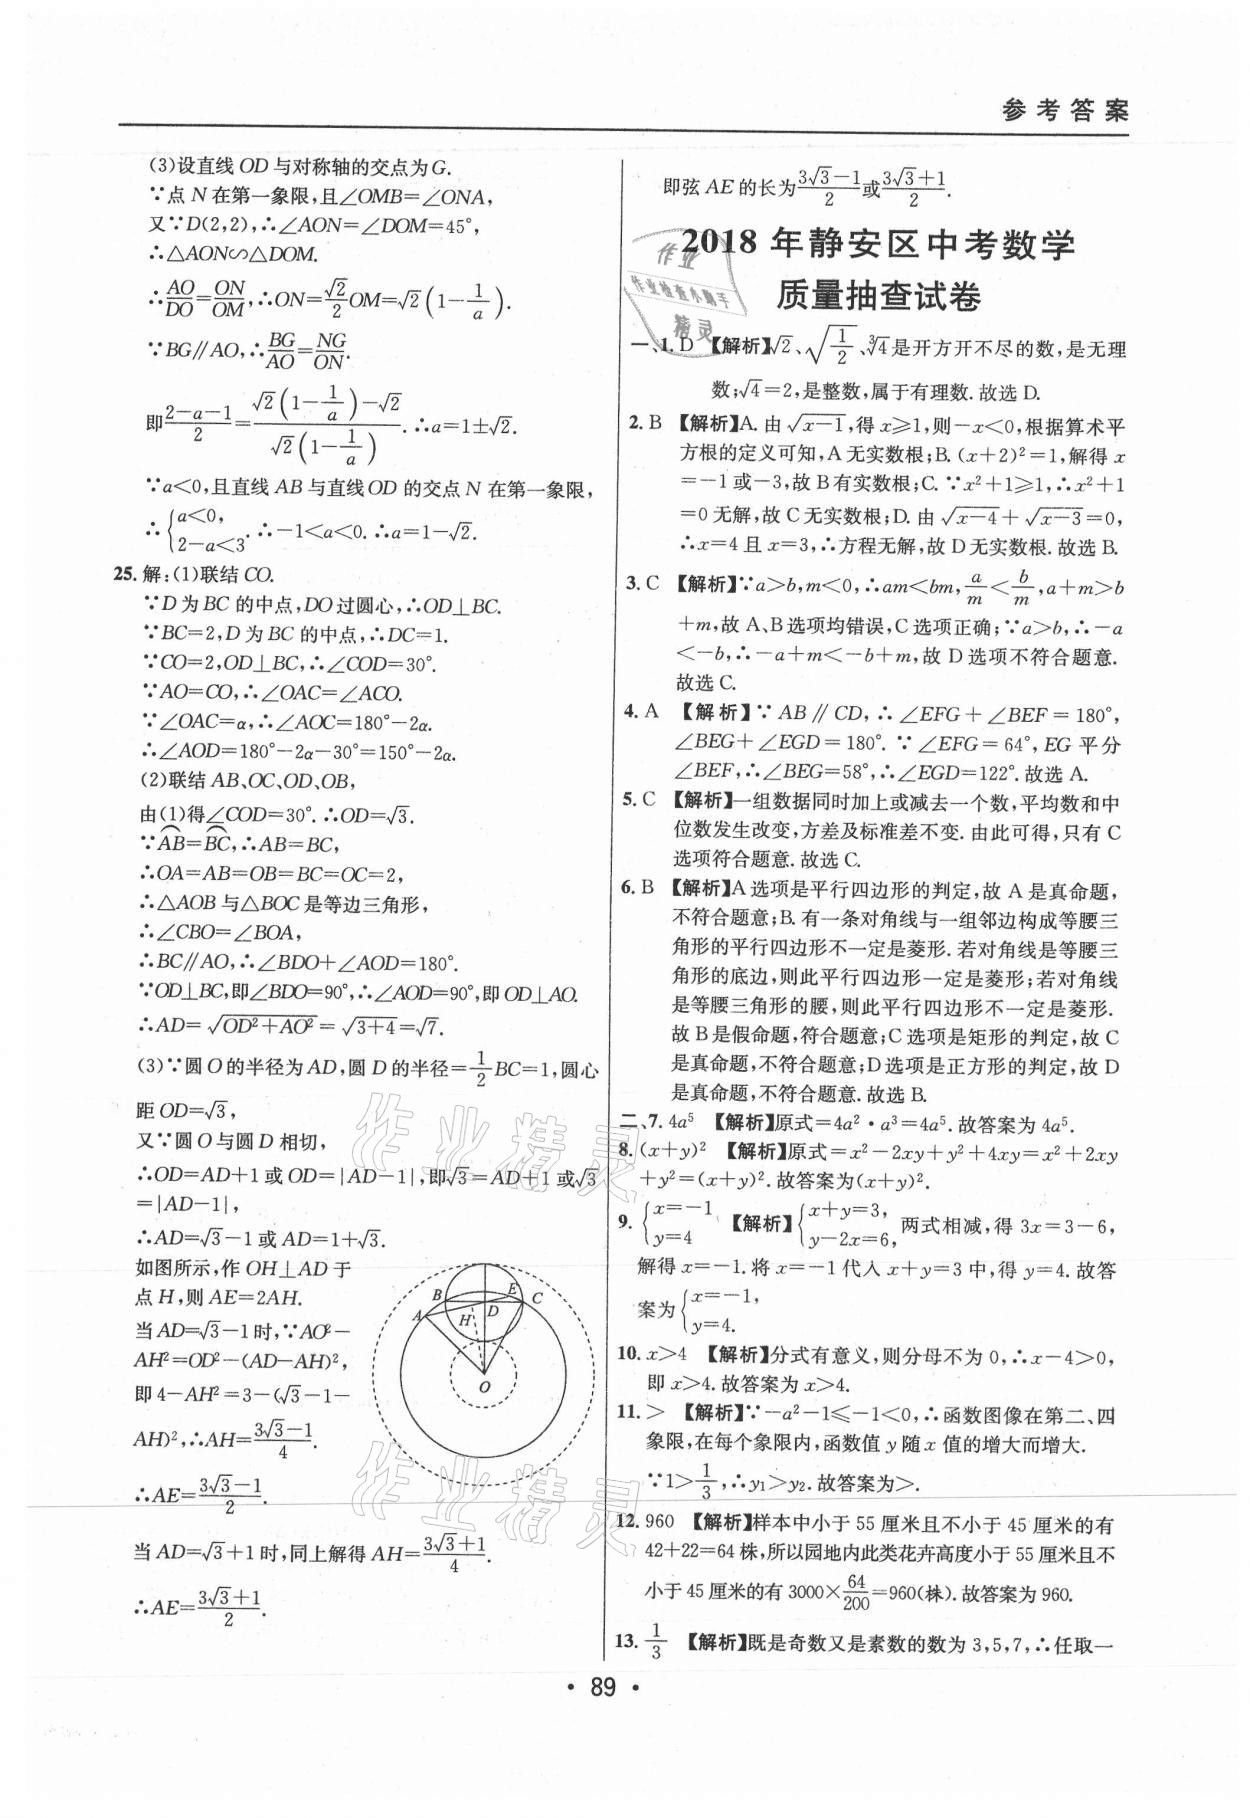 参考答案
(3)设直线 OD 与对称轴的交点为 G.
∵点 N 在第一象限,且∠OMB=∠ONA,
又∵D(2,2),∴∠AON=∠DOM=45°,
∴△AON∽△DOM.
∴AO/DO=ON/OM,∴ON=√2/2 OM=√2(1-1/a).
∵BG∥AO,∴BG/AO=NG/ON.
即(2-a-1)/2=(√2(1-1/a)-√2)/(√2(1-1/a)).∴a=1±√2.
∵a<0,且直线 AB 与直线 OD 的交点 N 在第一象限,
∴{a<0, 2-a<3.∴-1<a<0.∴a=1-√2.
25.解:(1)联结 CO.
∵D 为 BC 的中点,DO 过圆心,∴OD⊥BC.
∵BC=2,D 为 BC 的中点,∴DC=1.
∵CO=2,OD⊥BC,∴∠COD=30°.
∵AO=CO,∴∠OAC=∠ACO.
∵∠OAC=α,∴∠AOC=180°-2α.
∴∠AOD=180°-2α-30°=150°-2α.
(2)联结 AB、OC、OD、OB,
由(1)得∠COD=30°.∴OD=√3.
∵⌒AB=⌒BC,∴AB=BC,
∴OA=AB=OB=BC=OC=2,
∴△AOB 与△BOC 是等边三角形,
∴∠CBO=∠BOA,
∴BC∥AO,∴∠BDO+∠AOD=180°.
∵OD⊥BC,即∠BDO=90°,∴∠AOD=90°,即 OD⊥AO.
∴AD=√(OD²+AO²)=√(3+4)=√7.
(3)∵圆 O 的半径为 AD,圆 D 的半径=1/2 BC=1,圆心
距 OD=√3,
又∵圆 O 与圆 D 相切,
∴OD=AD+1 或 OD=|AD-1|,即√3=AD+1 或√3
=|AD-1|,
∴AD=√3-1 或 AD=1+√3.
如图所示,作 OH⊥AD 于
点 H,则 AE=2AH.
当 AD=√3-1 时,∵AO²-
AH²=OD²-(AD-AH)²,
即 4-AH²=3-(√3-1-
AH)²,∴AH=(3√3-1)/4.
∴AE=(3√3-1)/2.
当 AD=√3+1 时,同上解得 AH=(3√3+1)/4.
∴AE=(3√3+1)/2.
B
E
C
A
H
D
O
即弦 AE 的长为(3√3-1)/2或(3√3+1)/2.
2018 年静安区中考数学
质量抽查试卷
一、1. D 【解析】√2、√(1/2)、∛4是开方开不尽的数,是无理
数;√4=2,是整数,属于有理数.故选 D.
2. B 【解析】A. 由√(x-1),得 x≥1,则-x<0,根据算术平
方根的定义可知,A 无实数根;B. (x+2)²=1,解得 x
=-1 或-3,故 B 有实数根;C. ∵x²+1≥1,∴x²+1
=0 无解,故 C 无实数根;D. 由√(x-4)+√(x-3)=0,
∴x=4 且 x=3,∴方程无解,故 D 无实数根.故选 B.
3. C 【解析】∵a>b,m<0,∴am<bm,a/m<b/m,a+m>b
+m,故 A、B 选项均错误,C 选项正确;∵a>b,∴-a
<-b,∴-a+m<-b+m,故 D 选项不符合题意.
故选 C.
4. A 【解析】∵AB∥CD,∴∠EFG+∠BEF=180°,
∠BEG+∠EGD=180°.∵∠EFG=64°,EG 平分
∠BEF,∴∠BEG=58°,∴∠EGD=122°.故选 A.
5. C 【解析】一组数据同时加上或减去一个数,平均数和中
位数发生改变,方差及标准差不变.由此可得,只有 C
选项符合题意.故选 C.
6. B 【解析】A 选项是平行四边形的判定,故 A 是真命题,
不符合题意;B. 有一条对角线与一组邻边构成等腰三
角形的平行四边形不一定是菱形.若对角线是等腰三
角形的底边,则此平行四边形一定是菱形;若对角线
是等腰三角形的腰,则此平行四边形不一定是菱形.
故 B 是假命题,符合题意;C 选项是矩形的判定,故 C
是真命题,不符合题意;D 选项是正方形的判定,故 D
是真命题,不符合题意.故选 B.
二、7. 4a⁵ 【解析】原式=4a²·a³=4a⁵.故答案为 4a⁵.
8. (x+y)² 【解析】原式=x²-2xy+y²+4xy=x²+2xy
+y²=(x+y)².故答案为(x+y)².
9. {x=-1 y=4 【解析】{x+y=3, y-2x=6,两式相减,得 3x=3-6,
解得 x=-1.将 x=-1 代入 x+y=3 中,得 y=4.故答
案为{x=-1, y=4.
10. x>4 【解析】分式有意义,则分母不为 0,∴x-4>0,
即 x>4.故答案为 x>4.
11. > 【解析】∵-a²-1≤-1<0,∴函数图像在第二、四
象限,在每个象限内,函数值 y 随 x 值的增大而增大.
∵1>1/3,∴y₁>y₂.故答案为>.
12. 960 【解析】样本中小于 55 厘米且不小于 45 厘米的有
42+22=64 株,所以园地内此类花卉高度小于 55 厘米且不
小于 45 厘米的有 3000×64/200=960(株).故答案为 960.
13. 1/3 【解析】既是奇数又是素数的数为 3,5,7,∴任取一
• 89 •
作业
作业检查小助手
精灵
作业精灵
作业精灵